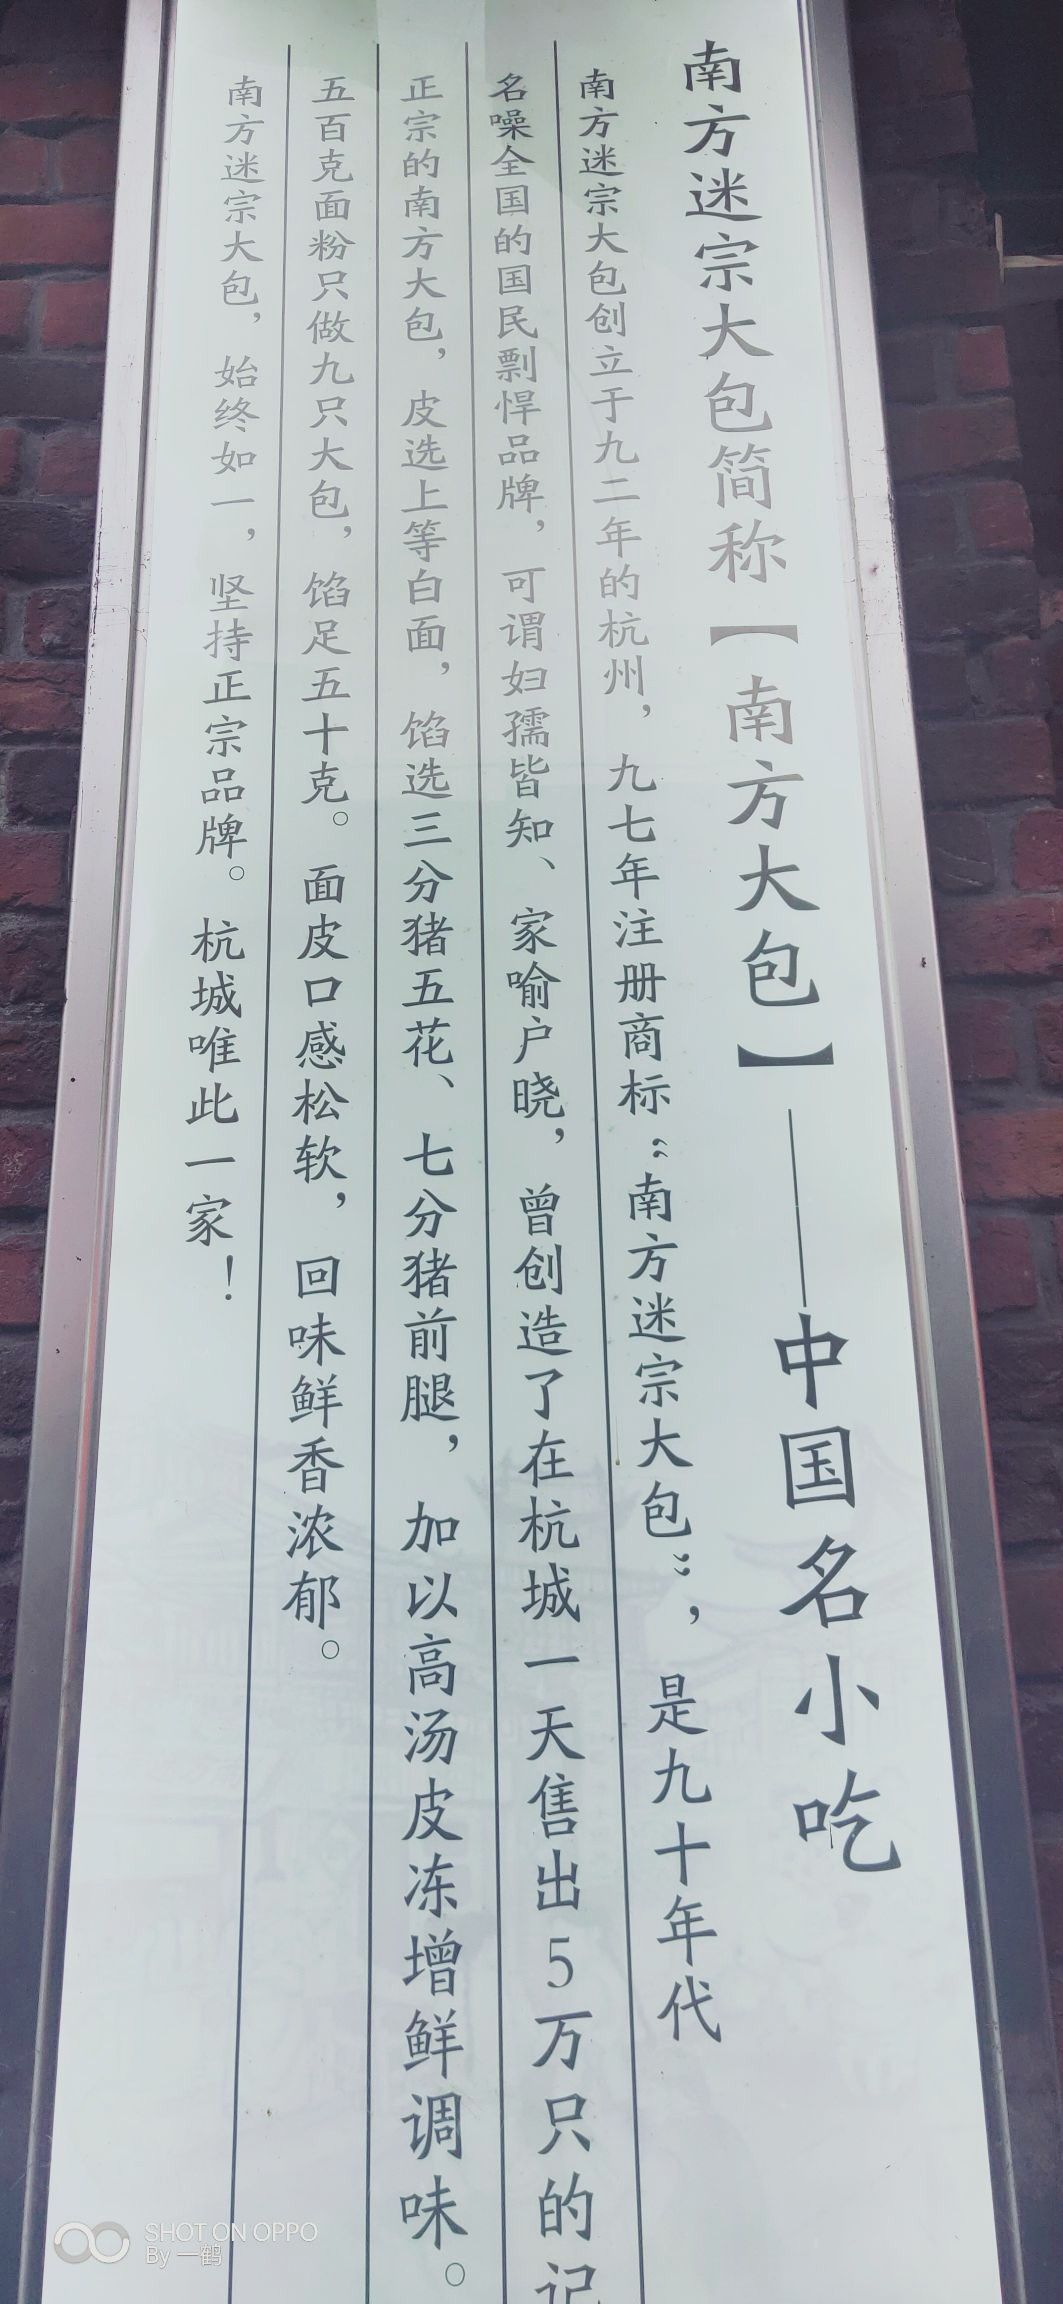 南方迷宗大包简称【南方大包】——中国名小吃
南方迷宗大包创立于九二年的杭州，九七年注册商标“南方迷宗大包”，是九十年代
名噪全国的国民剽悍品牌，可谓妇孺皆知、家喻户晓，曾创造了在杭城一天售出5万只的记
正宗的南方大包，皮选上等白面，馅选三分猪五花、七分猪前腿，加以高汤皮冻增鲜调味。
五百克面粉只做九只大包，馅足五十克。面皮口感松软，回味鲜香浓郁。
南方迷宗大包，始终如一，坚持正宗品牌。杭城唯此一家！
SHOT ON OPPO
By 一鹤